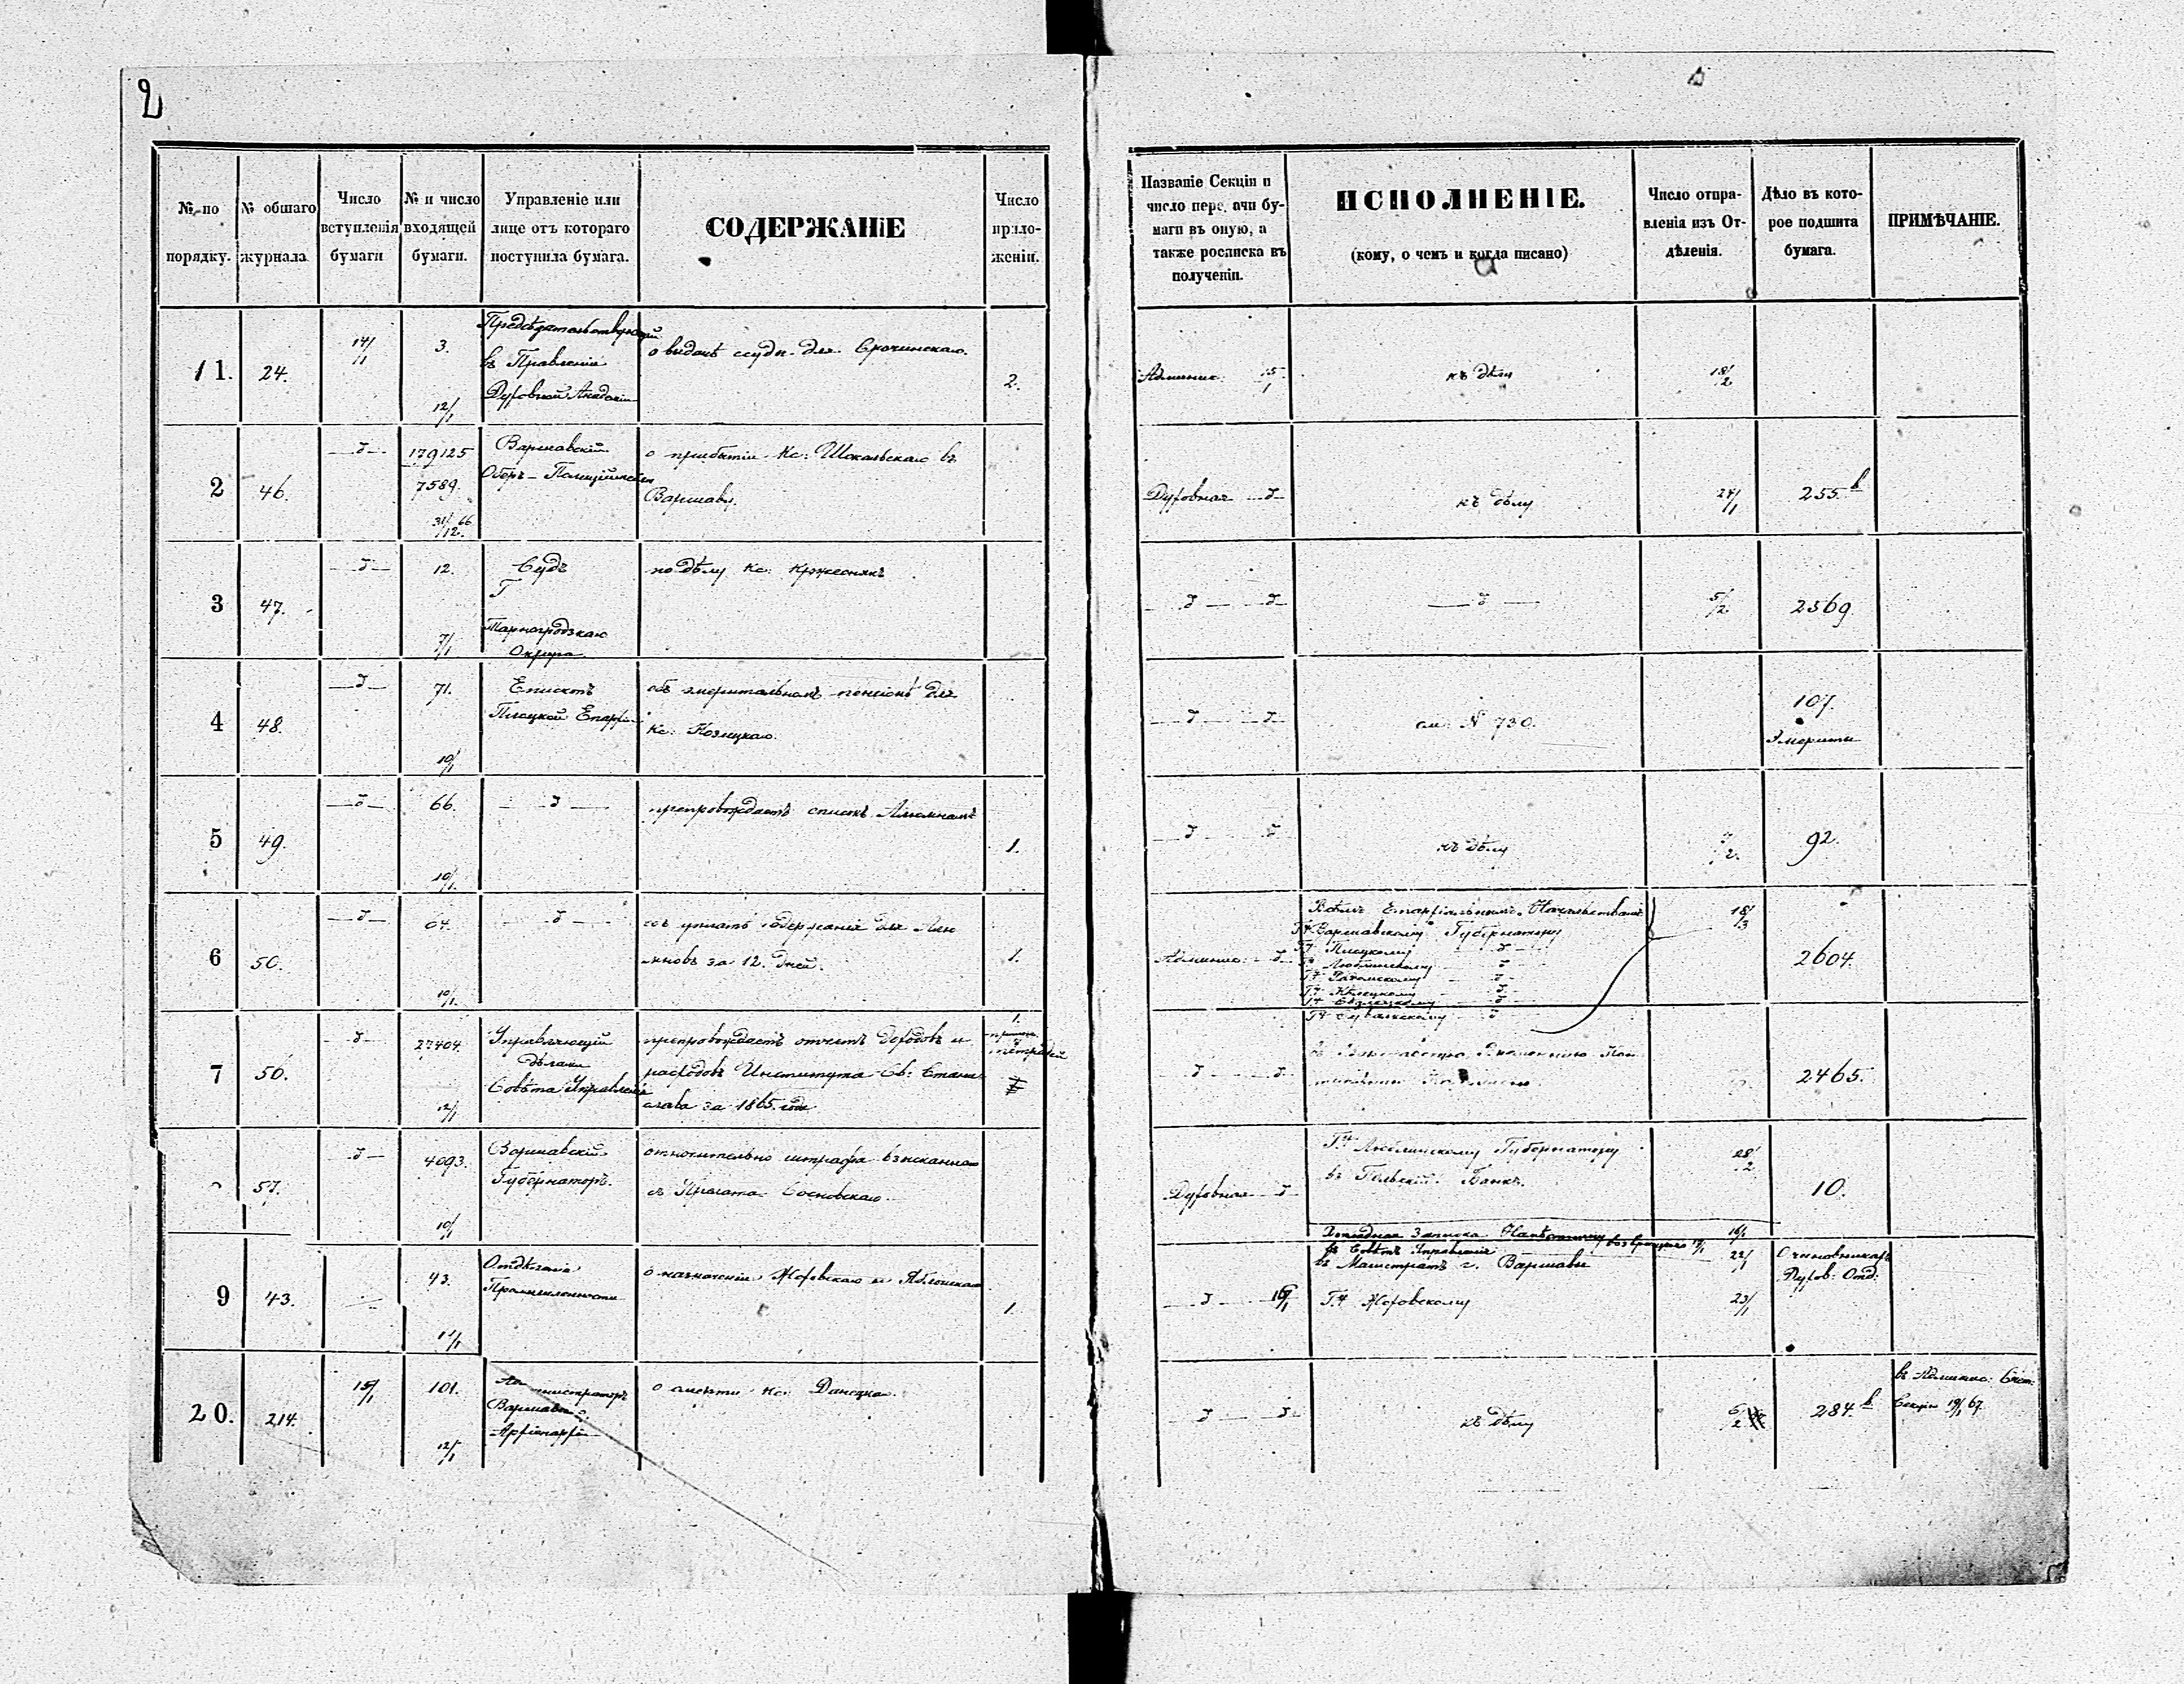 2
№ по порядку.
№ общаго журнала
Число вступленія бумаги
№ и число входящей бумаги.
Управленіе или лице отъ котораго поступила бумага.
СОДЕРЖАНІЕ
Число прило-женій.
Названіе Секціи и число пере. ачи бу-маги въ оную, а также росписка въ полученіи.
ИСПОЛНЕНІЕ.
(кому, о чемъ и когда писано)
Число отпра-вленія изъ От-дѣленія.
Дѣло въ кото-рое подшита бумага.
ПРИМѢЧАНІЕ.
11. 24. 14/1 3. 12/1
Предсѣдательствующій
въ Правленіи
Духовной Академіи
о выдачѣ ссуды для
2.
Админис. 15/1
къ дѣлу
18/2
2 46. 179125
7589.
31/12 66
Варшавскій
Оберъ-Полиціймейстеръ
о прибытіи Кс: Шокальскаго въ
Варшаву.
Духовная
къ дѣлу
24/1
255.b
3 47. 12. 7/1
Судъ
Тарногродзкаго
Округа
по дѣлу Кс:
5/2
2569.
4 48. 71. 10/1
Епископъ
Плоцкой Епархіи
объ эмеритальномъ пенсіонѣ для
Кс: Козицкаго.
см. № 730.
107.
Эмериты
5 49. 66. 10/1
препровождаетъ списокъ Алюмнамъ
1.
къ дѣлу
92.
6 50. 64. 10/1
содержанія для Алю
мновъ за 12. дней.
1.
Админис:
Всѣмъ Епархіальнымъ Начальствамъ
Г.Г. Варшавскому Губернатору
Г.Г. Плоцкому
Люблинскому
Г.Г. Радомскому
Г.Г. Кѣлецкому
Г.Г. Сѣдлецкому
Г.Г. Сувалкскому
18/3
2604.
7 50. 27404. 12/1
Управляющій
дѣлами
Совѣта Управленія
препровождаетъ отчетъ доходовъ и
расходовъ Института Св: Стани
слава за 1865. годъ
1.
2465.
57. 4093. 10/1
Варшавскій
Губернаторъ.
относительно штрафа взысканнаго
съ Прелата Сосновскаго.
Духовная
Г.Г. Люблинскому Губернатору
въ Польскій Банкъ.
28/2
10.
9 43. 43. 11/1
Отдѣленія
Промышленности
о назначеніи Жоховскаго и Яблонскаго
1.
16/1
Докладная Записка Намѣстнику
въ Совѣтъ Управленія
въ Магистратъ г. Варшавы
Г.Г. Жоховскому
22/1
23/1
О чиновникахъ
Духов: Отд:
20. 214. 15/1 101. 12/1
Администраторъ
Варшавской
Архіепархіи
о смерти Кс:
къ дѣлу
6/2
284.b
въ Админис:
Секціи 19/1 67.